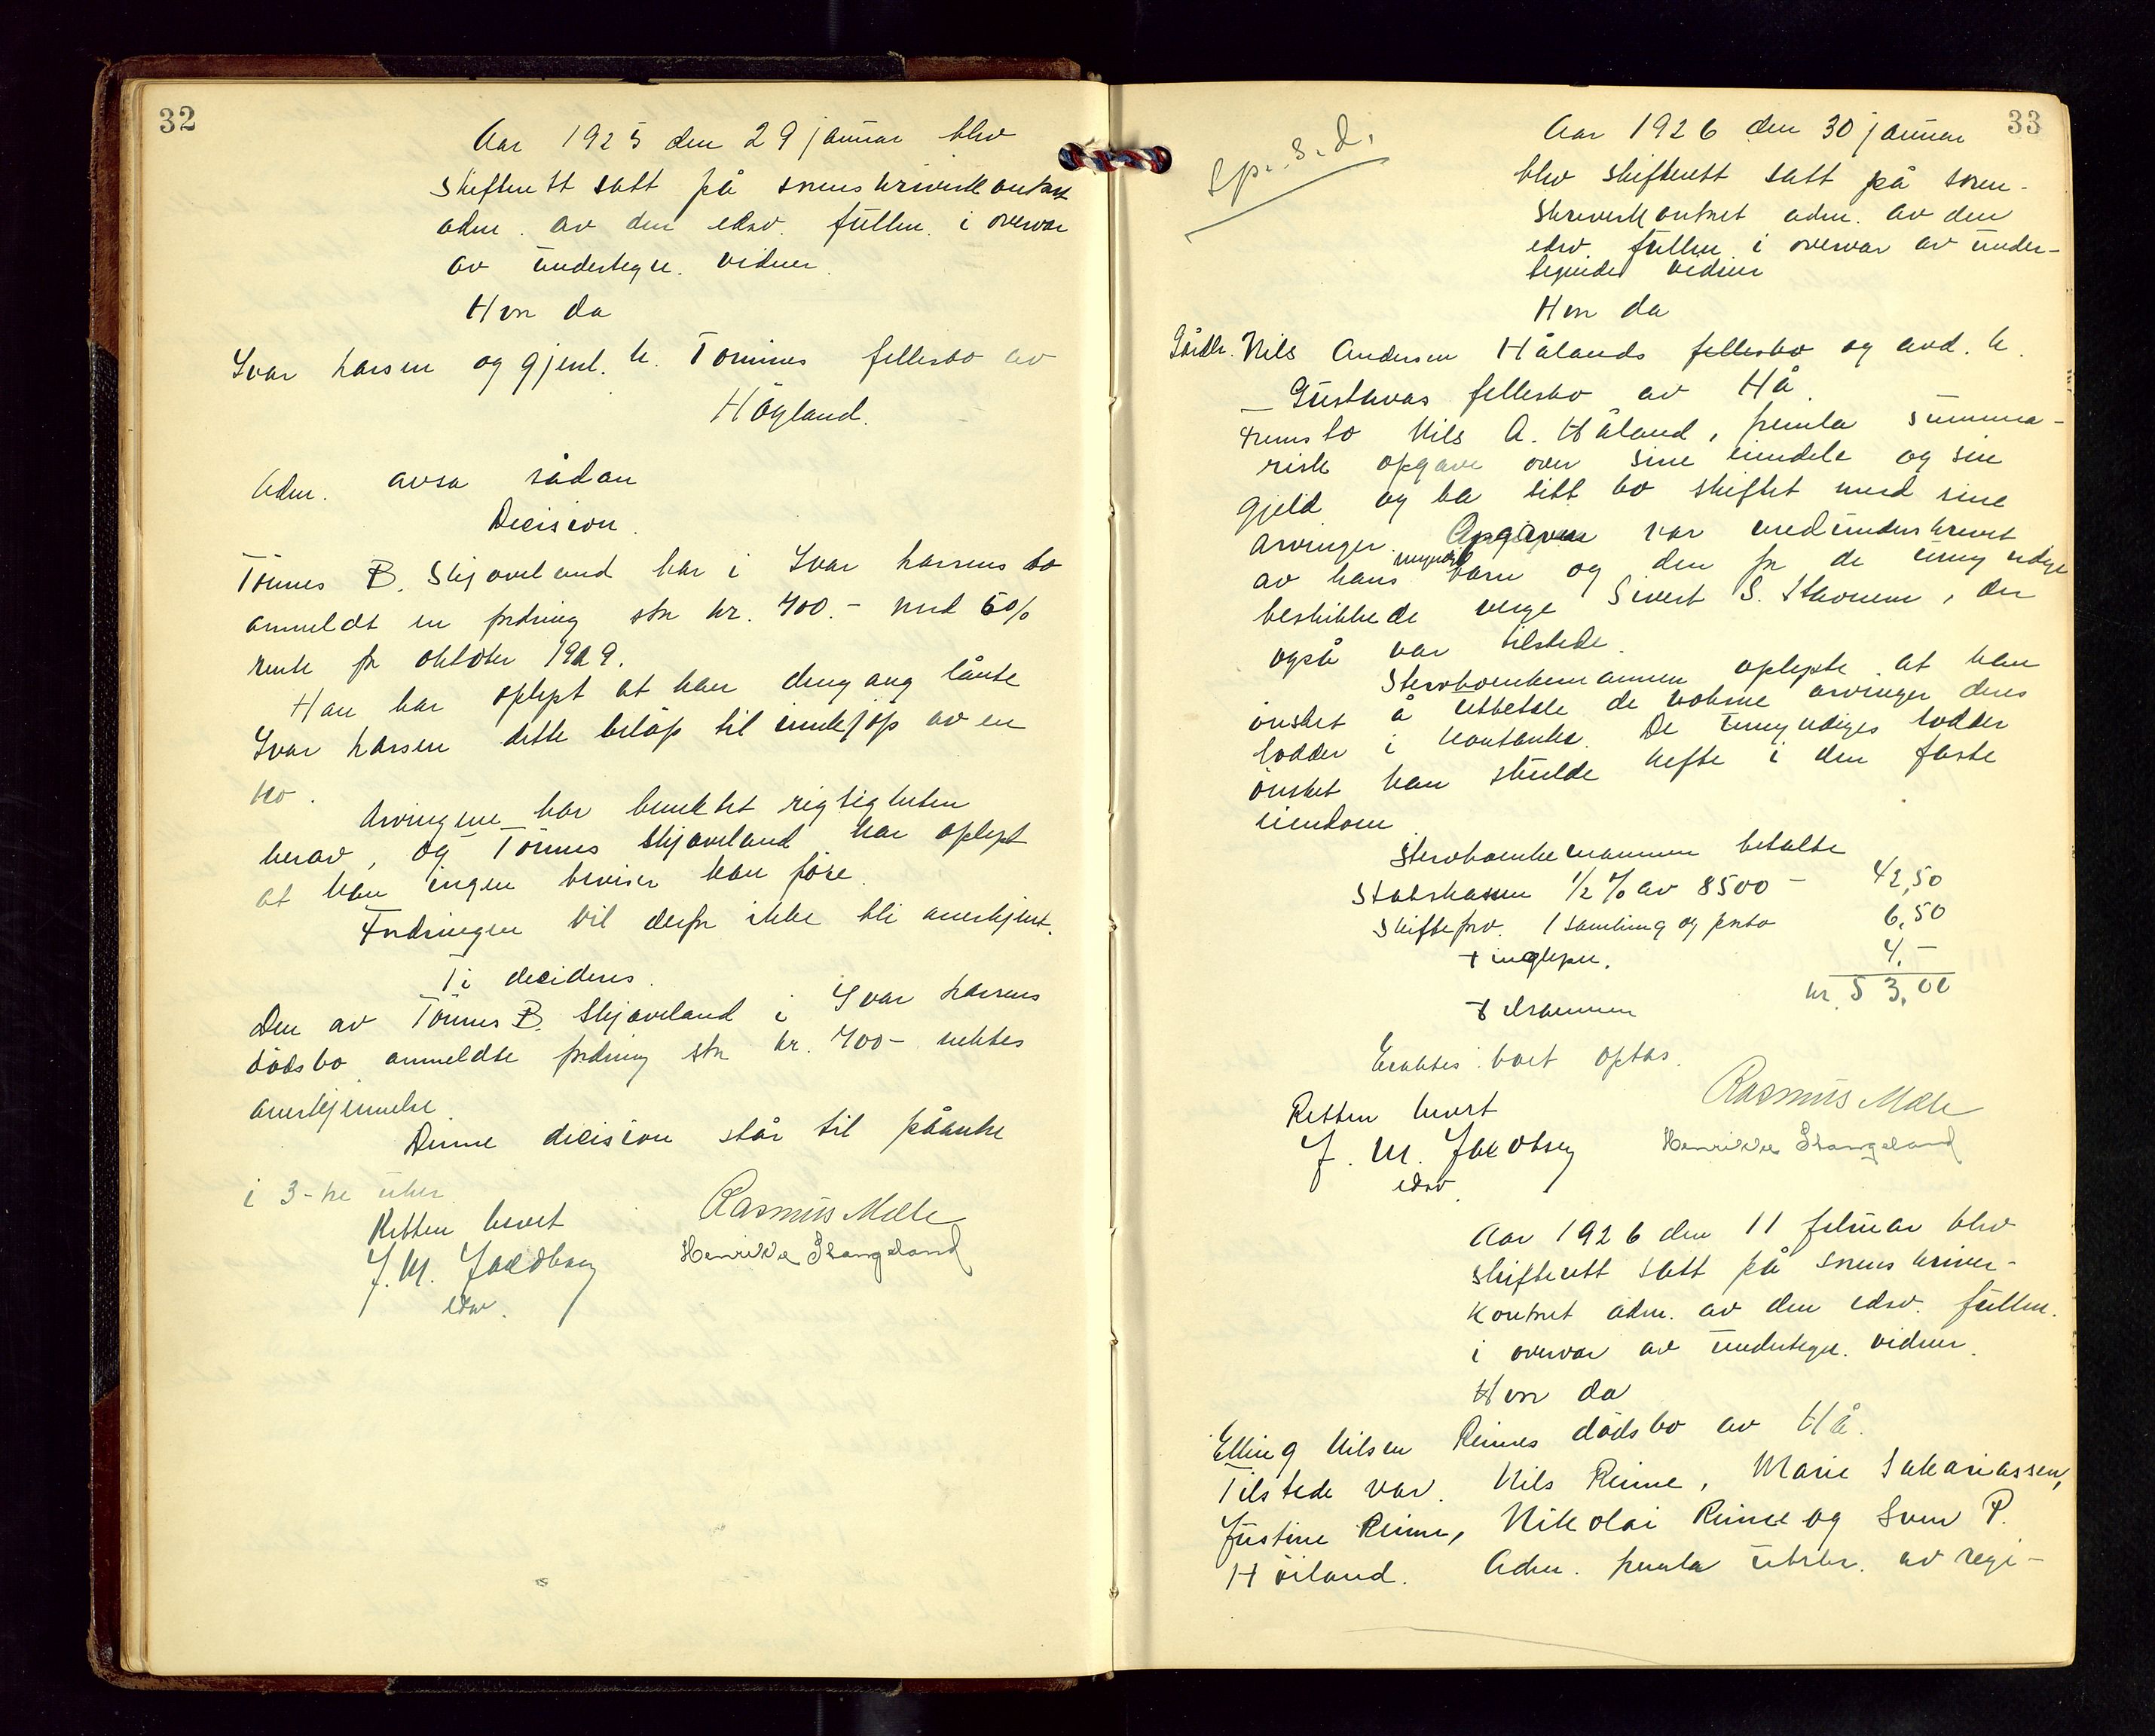 32
Aar 1925 den 29 januar blev
skifterett satt på sorenskriverkontoret
adm. av den edsv. fullm. i overvær
av undertegn. vidner.
Hvor da
Ivar Larsen og gjenl. h. Tonines fellesbo av
Høgland.
Adm. avsa sådan
Decision.
Tönnes B. Skjæveland har i Ivar Larsens bo
anmeldt en fordring stor kr. 700.- med 6 0/0
rente fr oktober 1919.
Han har oplyst at han dengang lånte
Ivar Larsen dette belöp til innkjöp av en
ko.
Arvingene har benektet rigtigheten
herav, og Tönnes Skjæveland har oplyst
at han ingen beviser kan före.
Fordringen vil derfor ikke bli anerkjent.
Ti decideres.
Den av Tönnes B. Skjæveland i Ivar Larsens
dödsbo anmeldte fordring stor kr. 700- nektes
anerkjennelse.
Denne decision står til påanke
i 3-tre uker.
Retten hevet
J. M. Jacobsen
edsv.
Rasmus Mæle
Henrikke Stangeland
33
Sp. s. d.
Aar 1926 den 30 januar
blev skifterett satt på soren-
skriverkontoret adm. av den
edsv. fullm. i overvær av under-
tegnede vidner
Hvor da
Gårdbr. Nils Andersen Hålands fellesbo og avd. h.
Gustavas fellesbo av Hå.
Fremsto Nils A. Håland, fremla summa-
risk opgave over sine eiendele og sin
gjeld og ba sitt bo skiftet med sine
arvinger. Opgaven var medunderskrevet
av hans myndige barn og den for de umyndige
beskikkede verge Sivert S. Stavnem, der
også var tilstede.
Stervboenkemannen oplyste at han
önsket å utbetale de voksne arvinger deres
lodder i kontanter. De umyndiges lodder
önsket han skulde hefte i den faste
eiendom
Stervboenkemannen betalte
Statskassen 1/2 % av 8500 - 42,50
Skifteprov. 1 samling og porto 6,50
tinglysn. 4.-
tilsammen kr. 53,00
Eraktes boet optas.
Retten hevet
J. M. Jacobsen
edsv.
Rasmus Mæle
Henrikke Stangeland
Aar 1926 den 11 februar blev
skifterett satt på sorenskriver-
kontoret adm. av den edsv. fullm.
i overvær av undertegn. vidner.
Hvor da
Elling Nilsen Reimes dödsbo av Hå.
Tilstede var. Nils Reime, Marie Sakariassen,
Justine Reime, Nikolai Reime og Sven P.
Höiland. Adm. fremla utskr. av regi-